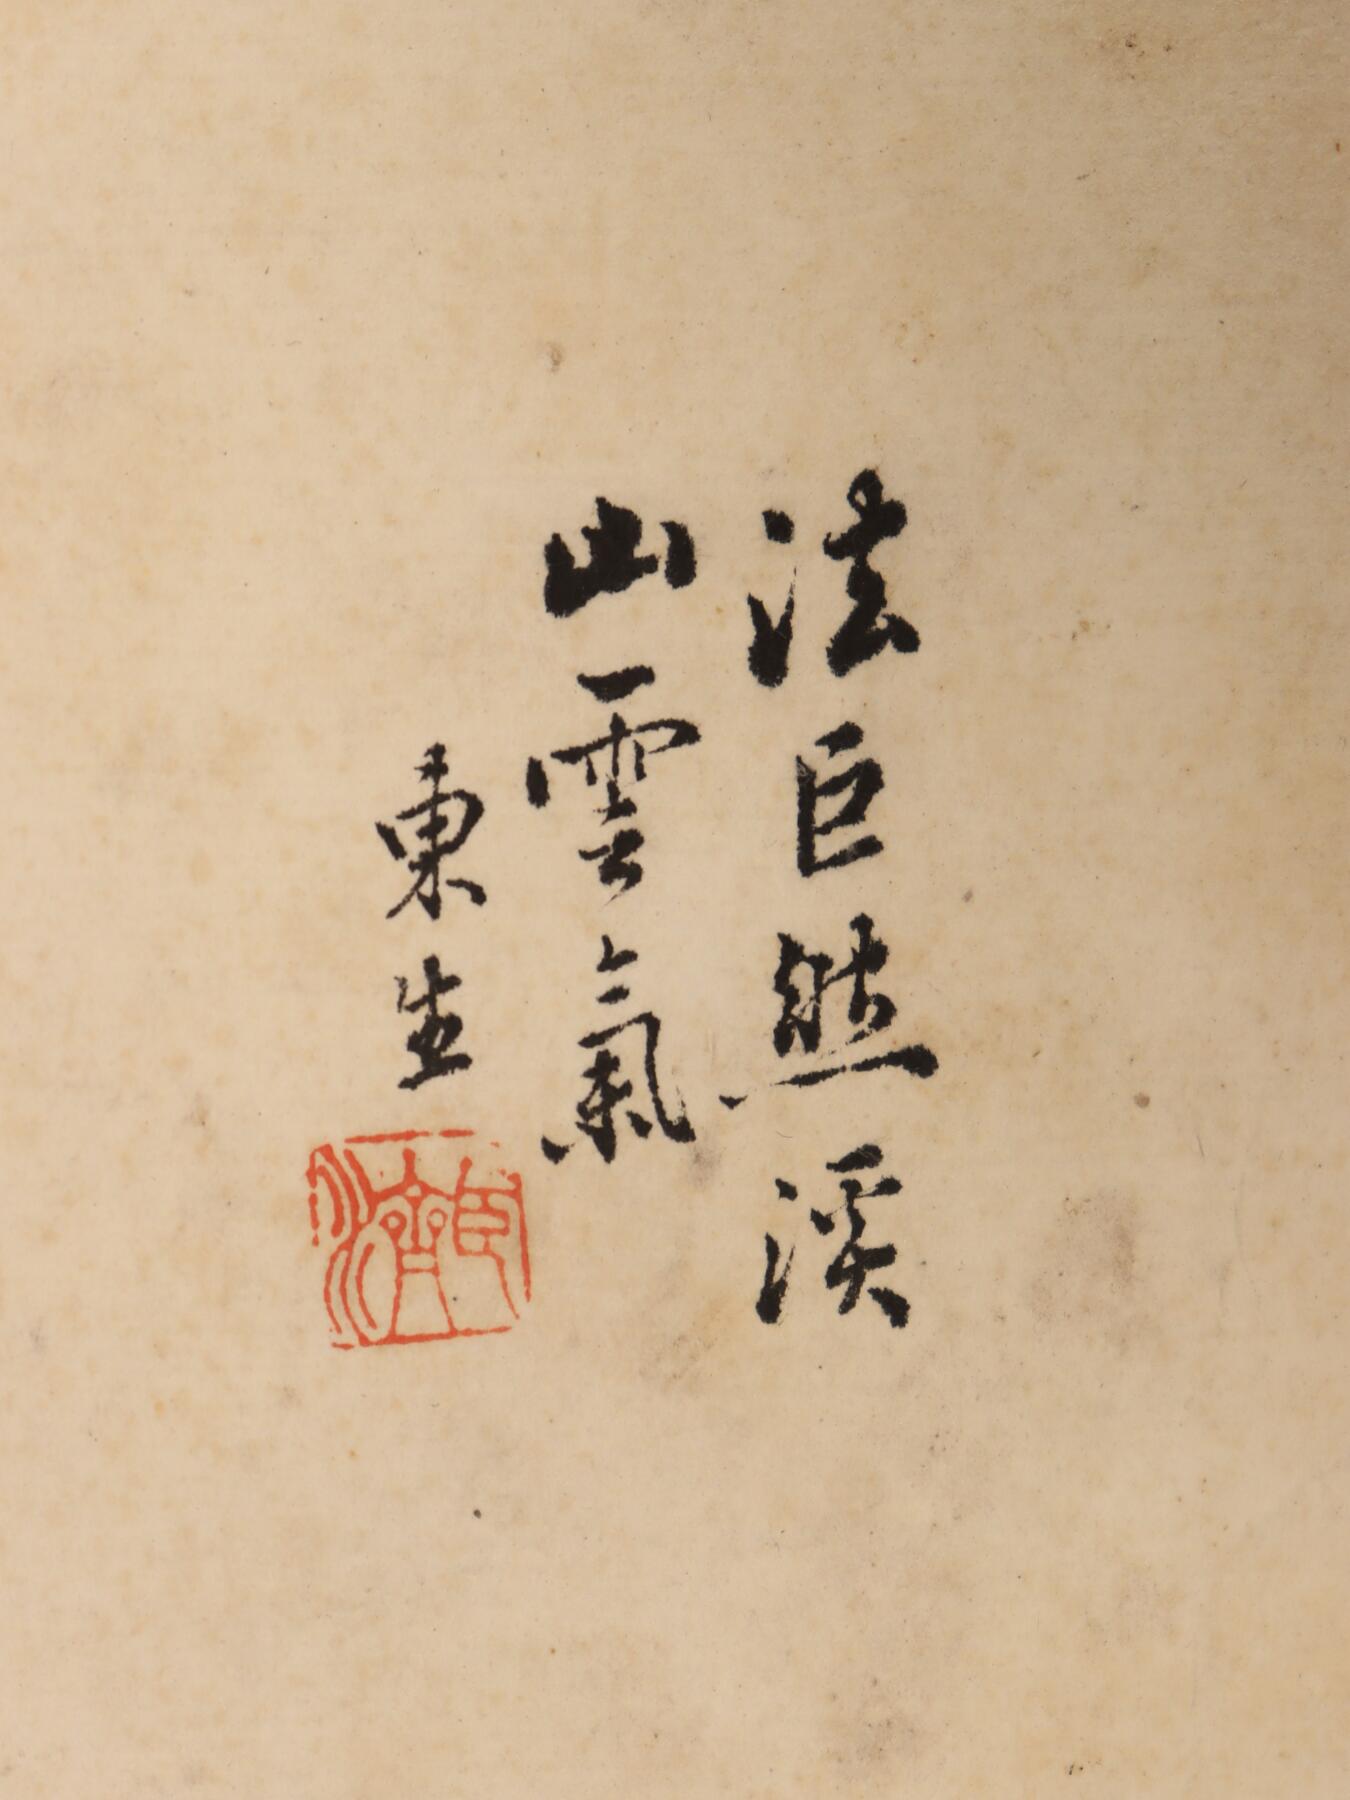 法巨然溪
山雲氣
東生
臣濟